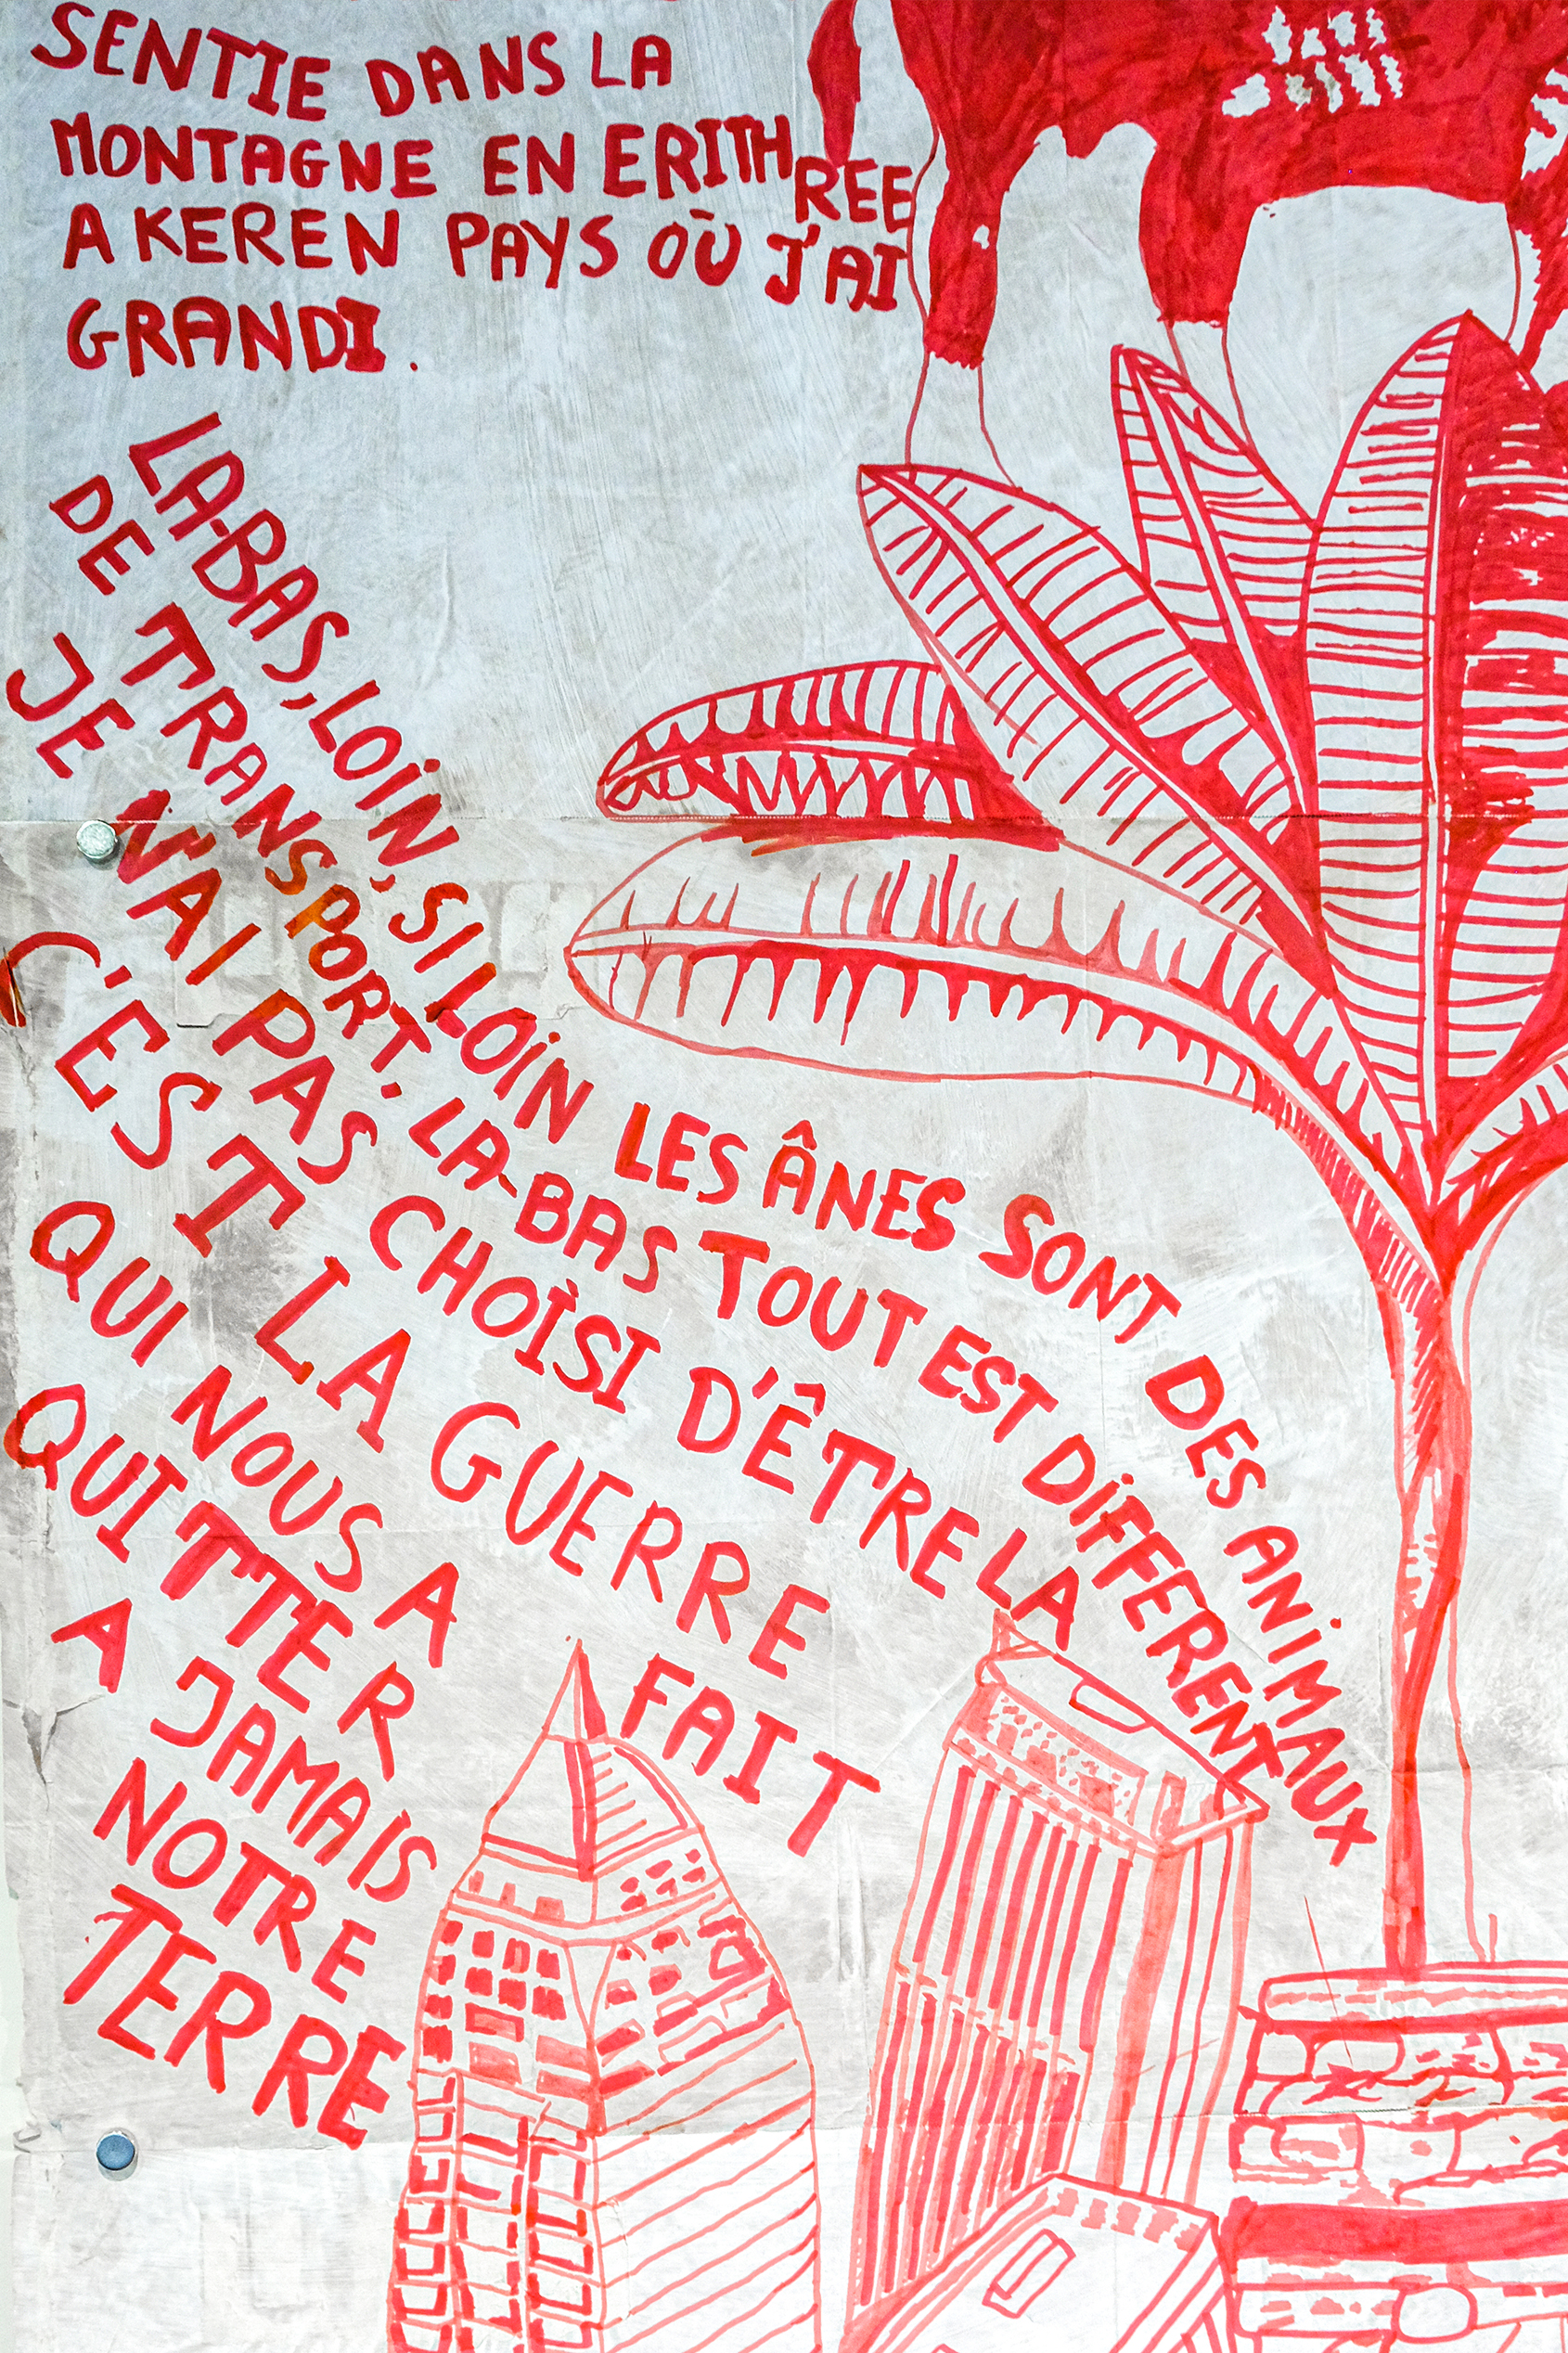 SENTIE DANS LA
MONTAGNE EN ERITHREE
A KEREN PAYS OÙ J'AI
GRANDI.
LA-BAS, LOiN, SI LOiN LES ÂNES SONT DES ANiMAUX
DE TRANSPORT. LA-BAS TOUT EST DiFFERENT
JE N'AI PAS CHOiSI D'ÊTRE LA
C'EST LA GUERRE
QUI NOUS A FAIT
QUITTER
A JAMAIS
NOTRE
TERRE